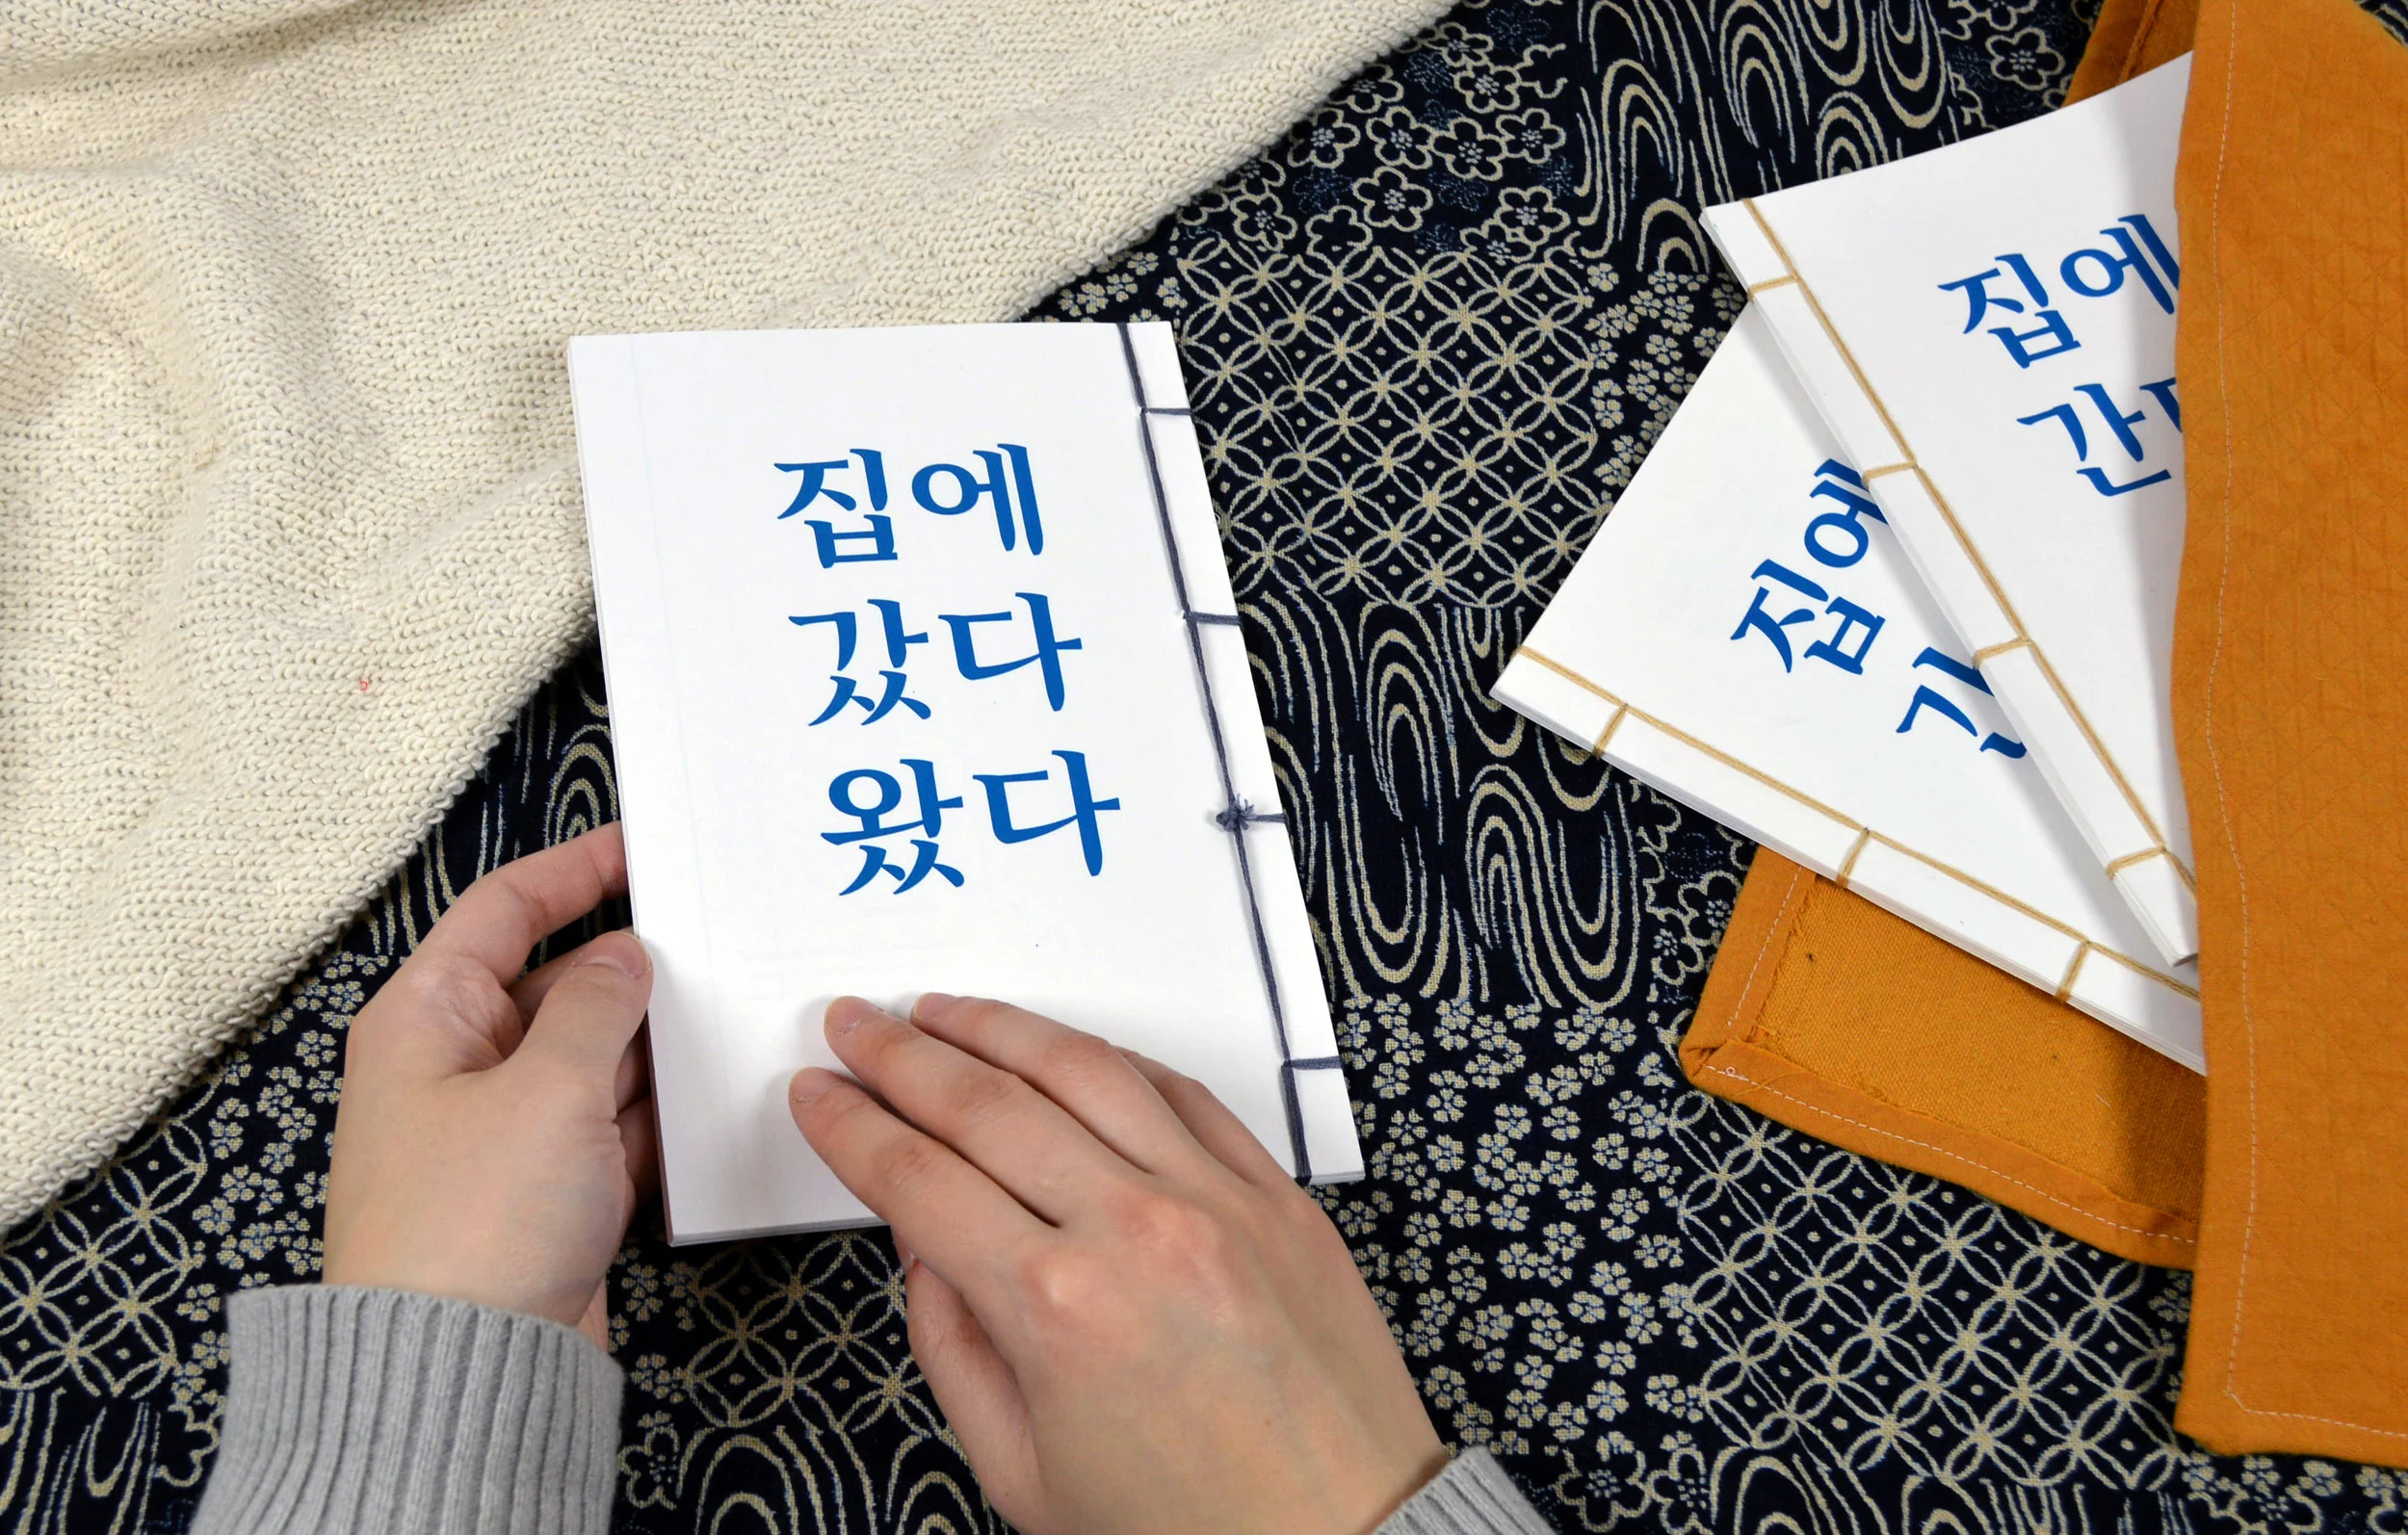 집에
갔다
왔다
집에
간
집에